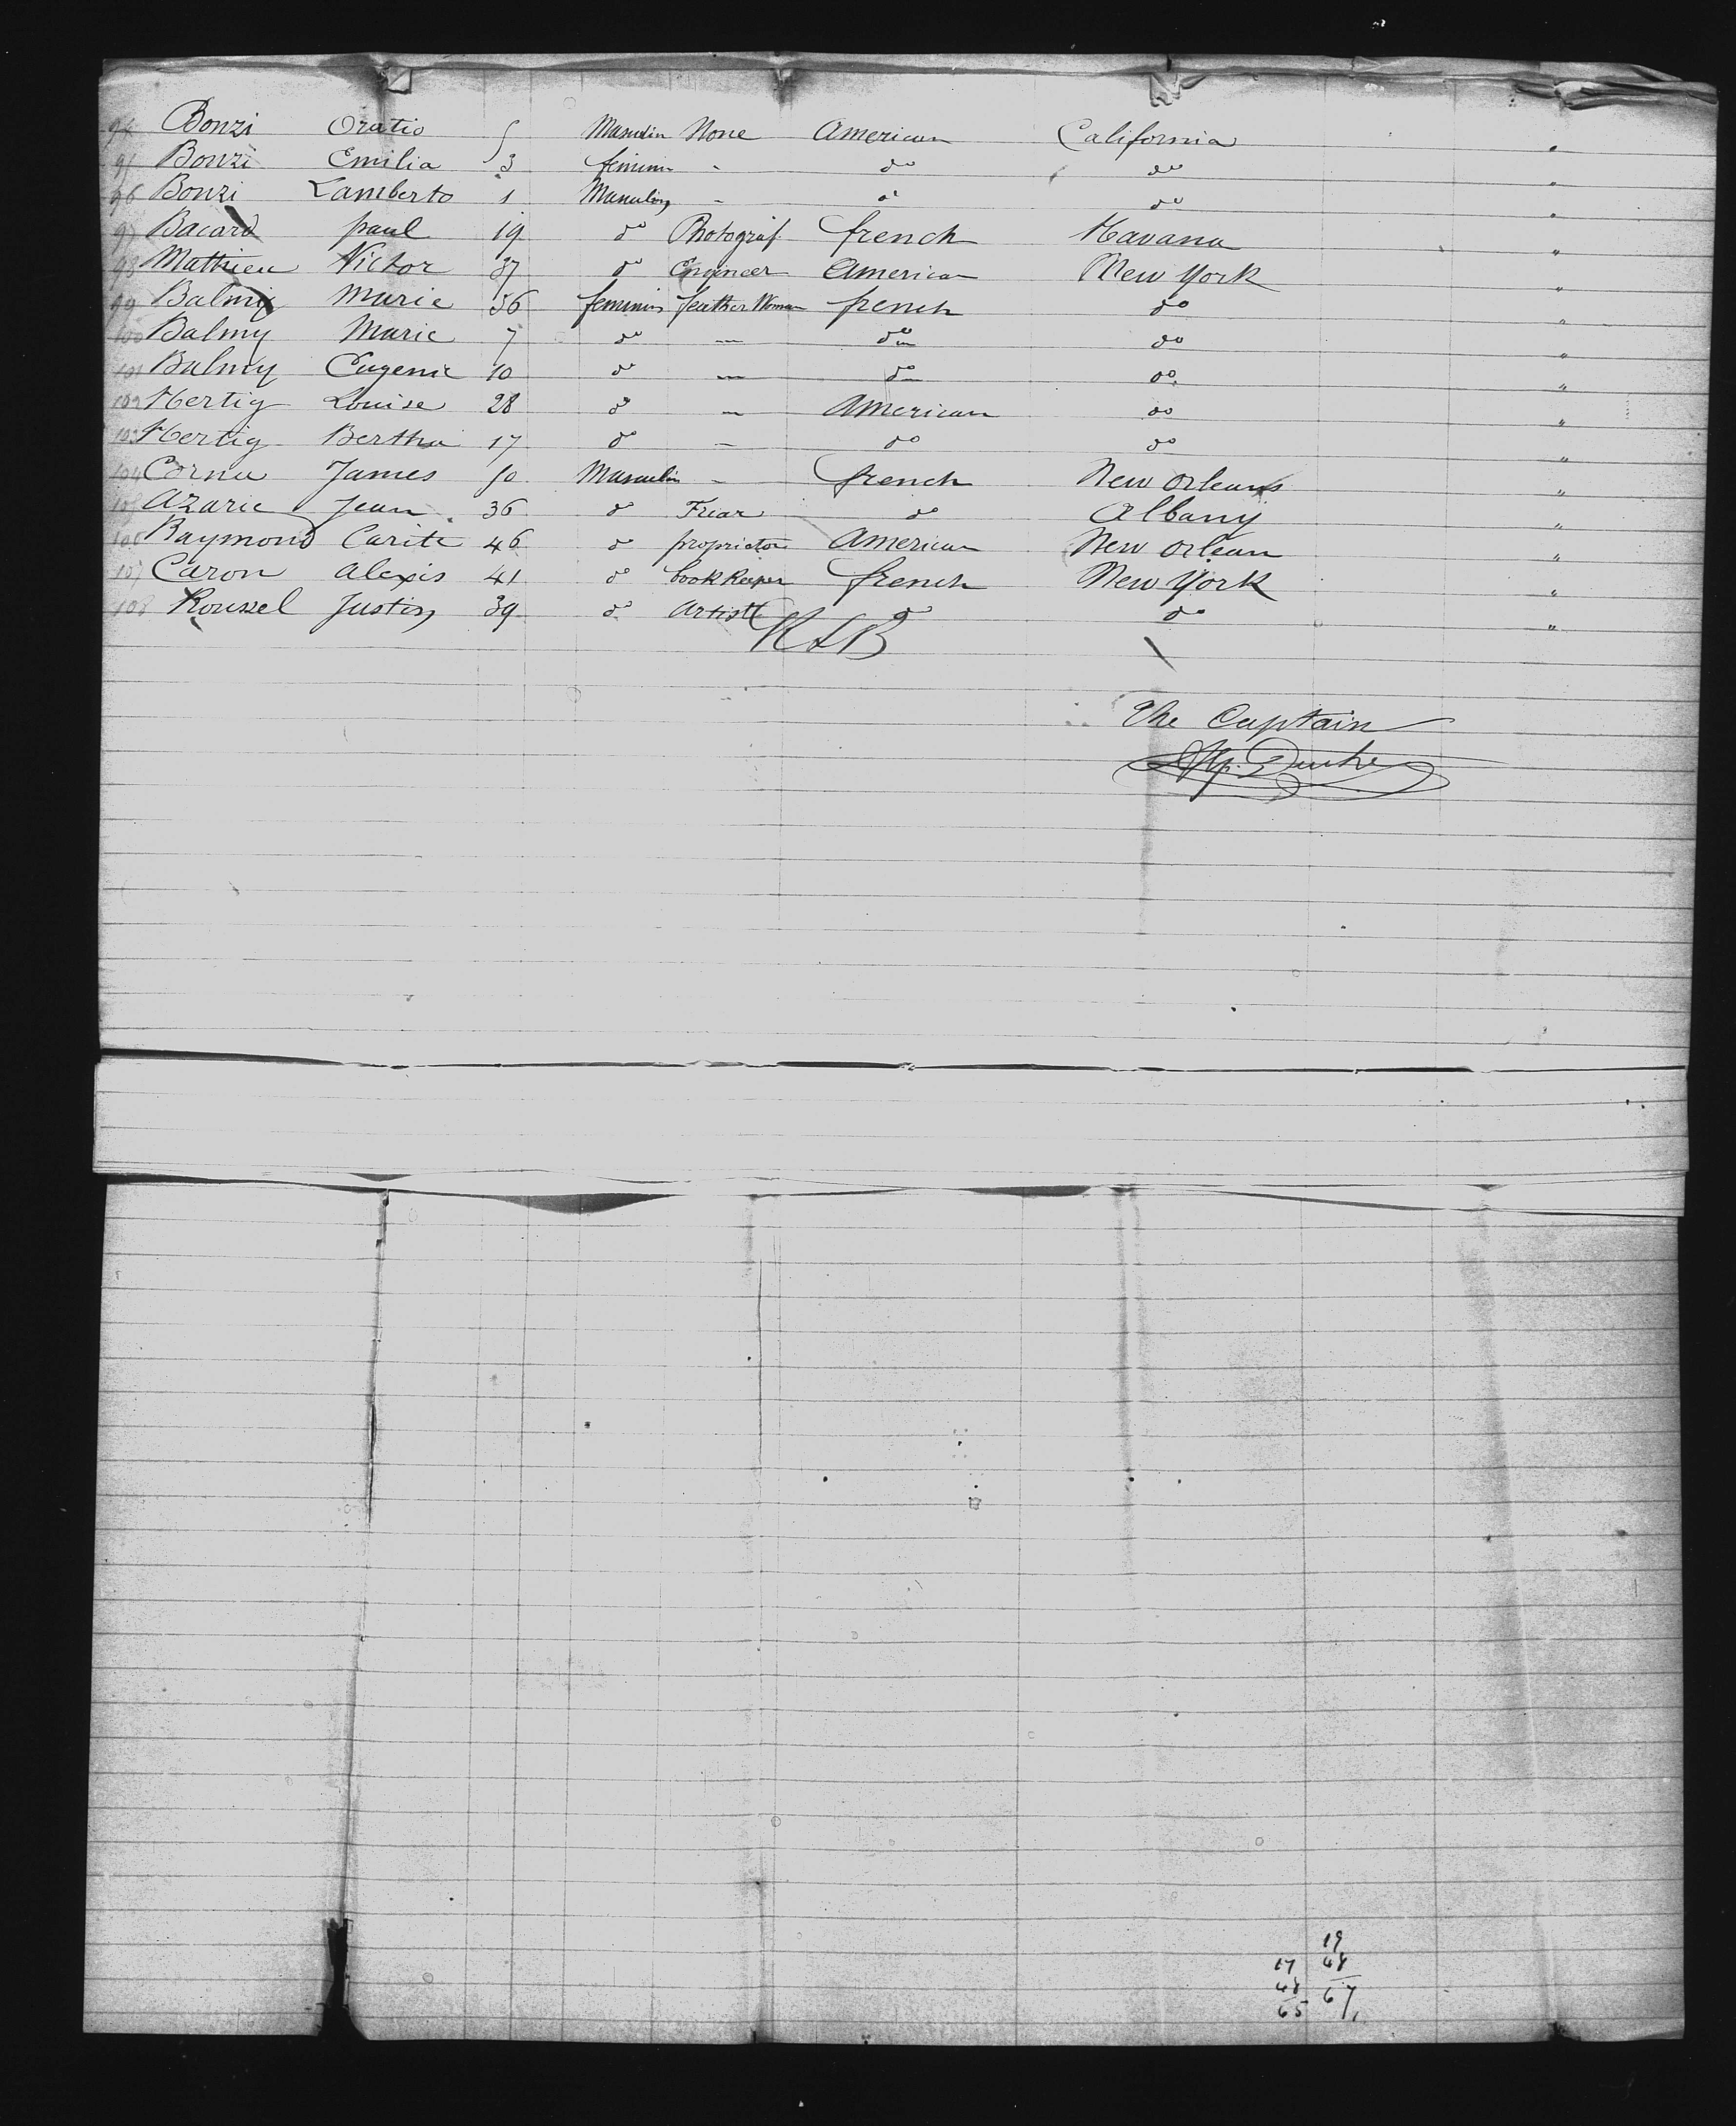 94 Bonzi Oratio 5 Masculin None American California "
95 Bonzi Emilia 3 feminin - do do "
96 Bonzi Lamberto 1 Masculin - do do "
97 Bacard paul 19 do Photograf french Havana "
98 Mathieu Victor 37 do Engineer American New York "
99 Balmy Marie 36 feminin feather Woman french do "
100 Balmy Marie 7 do - do do "
101 Balmy Eugenie 10 do - do do "
102 Hertig Louise 28 do - American do "
103 Hertig Bertha 17 do - do do "
104 Cornu James 50 Masculin - french New Orleans "
105 Azarie Jean 36 do Friar do Albany "
106 Raymond Carite 46 do proprietor American New Orlean "
107 Caron Alexis 41 do book Keeper french New York "
108 Roussel Justin 39 do Artist do do "
The Captain
19
17 48
48 67
65